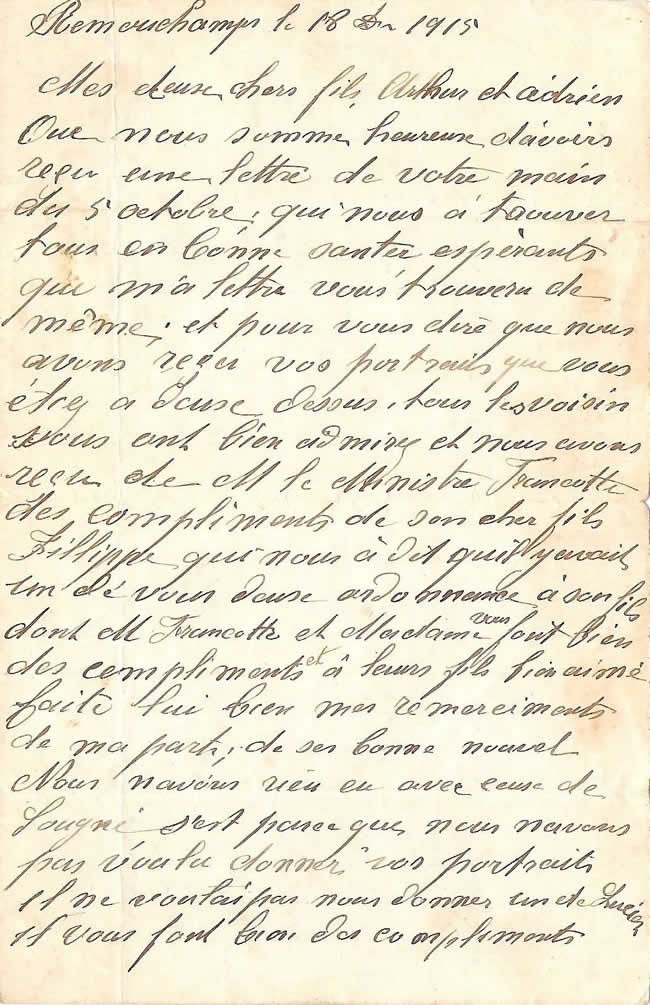 Remouchamps le 18 1915
Mes deuse chers fils, Arthur et adrien
Que nous somme heureuse d'avoirs
reçu une lettre de votre main
du 5 octobre, qui nous à trouver
tous en bonne santée espèrants
que m'a lettre vous trouvera de
même, et pour vous dire que nous
avons reçu vos portraits que vous
étiez a deuse dessus, tous les voisin
vous ont bien admirez et nous avons
reçu de M le Ministre Francotte
des compliments de son cher fils
Fillippe qui nous à dit qu'il yavait
un dé vous deuse ordonnance à son fils
dont M Francotte et Madame vous font bien
des compliments et à leurs fils bienaimé
faite lui bien mes remerciments
de ma part, de ses bonne nouvel
Nous navons rien eu avec ceuse de
Sougné s'est parce que nous navons
pas voulu donner vos portraits
il ne voulai pas nous donner un de Lucien
il vous font bien des compliments